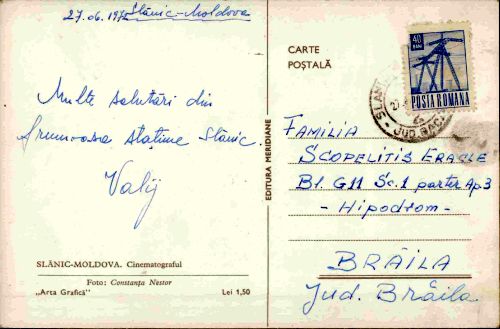 Slănic-Moldova
Multe salutări din
frumoasa stațiune Slănic.
Valy
SLĂNIC-MOLDOVA. Cinematograful
Foto: Constanța Nestor
„Arta Grafică” Lei 1,50
EDITURA MERIDIANE
CARTE
POȘTALĂ
40
BANI
POSTA ROMANA
JUD. BAC
FAMILIA
SCOPELITIS ERACLE
Bl. G11 Sc. 1 parter Ap 3
- Hipodrom -
BRĂILA
Jud. Brăila